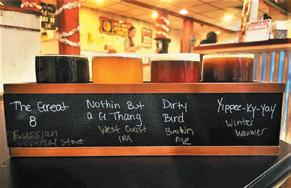 The Great
8
Russian
Imperial Stout
Nothin But
a G Thang
West Coast
IRA
Dirty
Bird
Brown
Ale
Yippee-Ky-Yay
Winter
Warmer